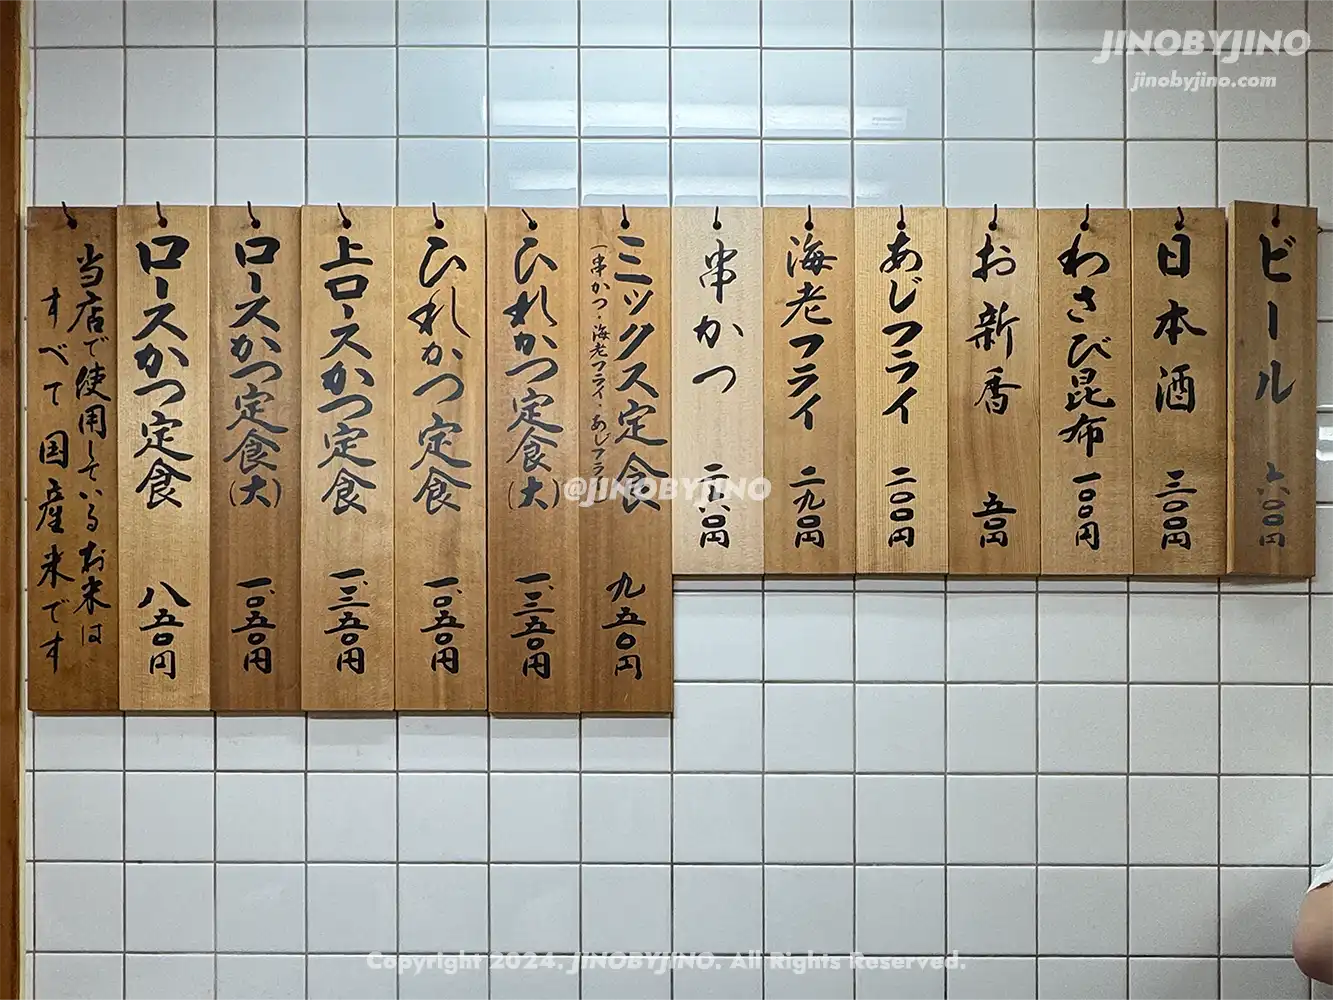 JINOBYJINO
jinobyjino.com
ビール 六〇〇円
日本酒 三〇〇円
わさび昆布 一〇〇円
お新香 五〇円
あじフライ 二〇〇円
海老フライ 二九〇円
串かつ
ミックス定食 九五〇円
(串かつ・海老フライ・あじフラ
ひれかつ定食(大) 一、三五〇円
ひれかつ定食 一、〇五〇円
上ロースかつ定食 一、三五〇円
ロースかつ定食(大) 一、〇五〇円
ロースかつ定食 八五〇円
当店で使用しているお米は
すべて国産米です
@JINOBYJINO
Copyright 2024. JINOBYJINO. All Rights Reserved.